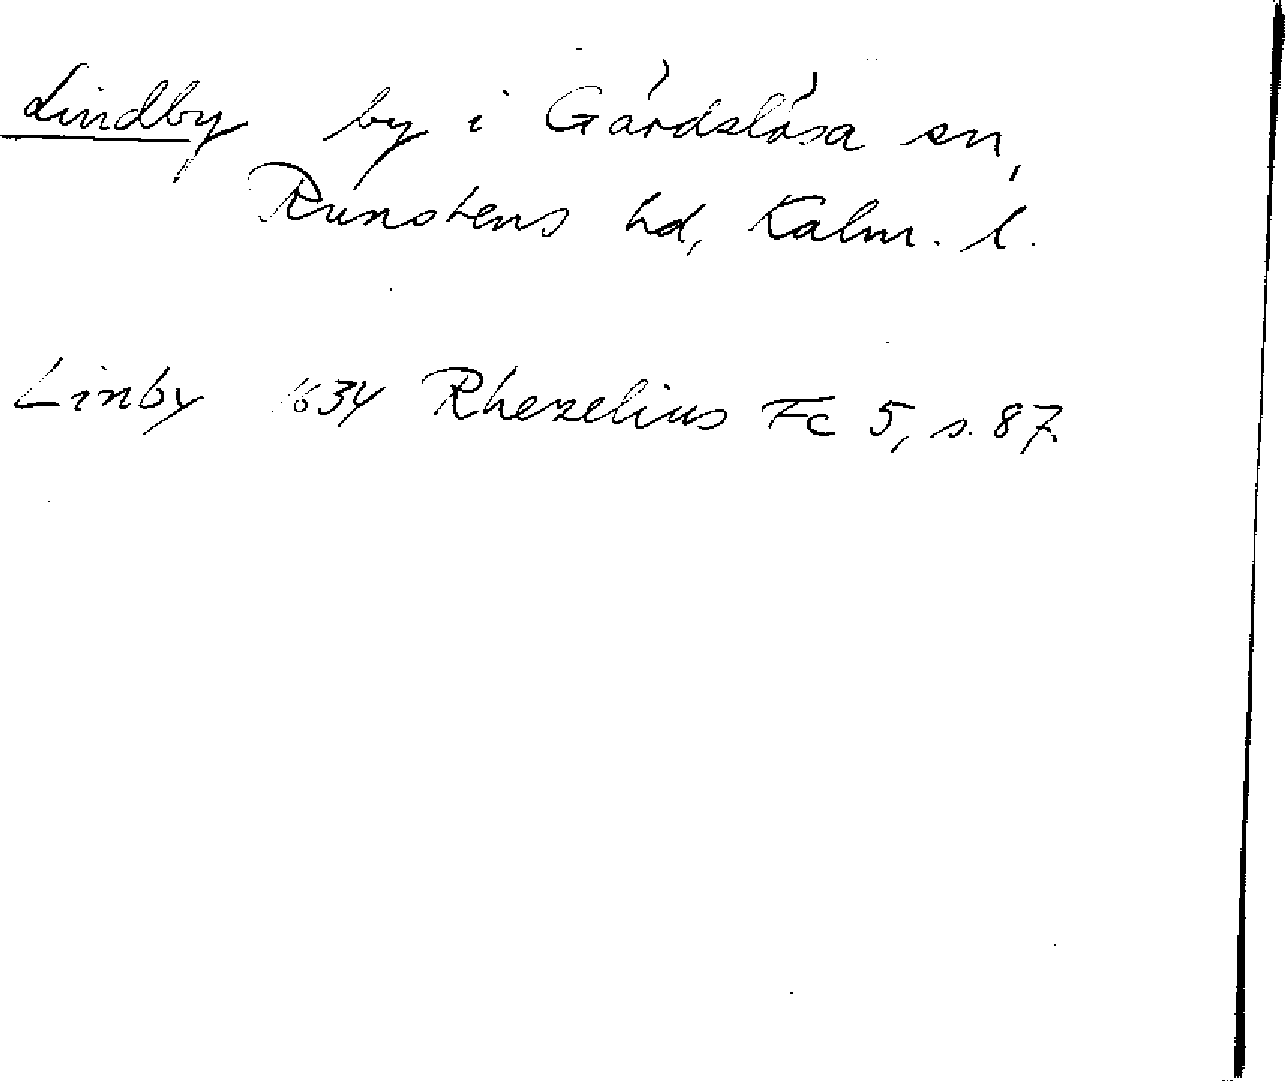 Lindby by i Gårdslösa sn,
Runstens hd, Kalm. l.
Linby 1634 Rhezelius Fc 5, s. 87.